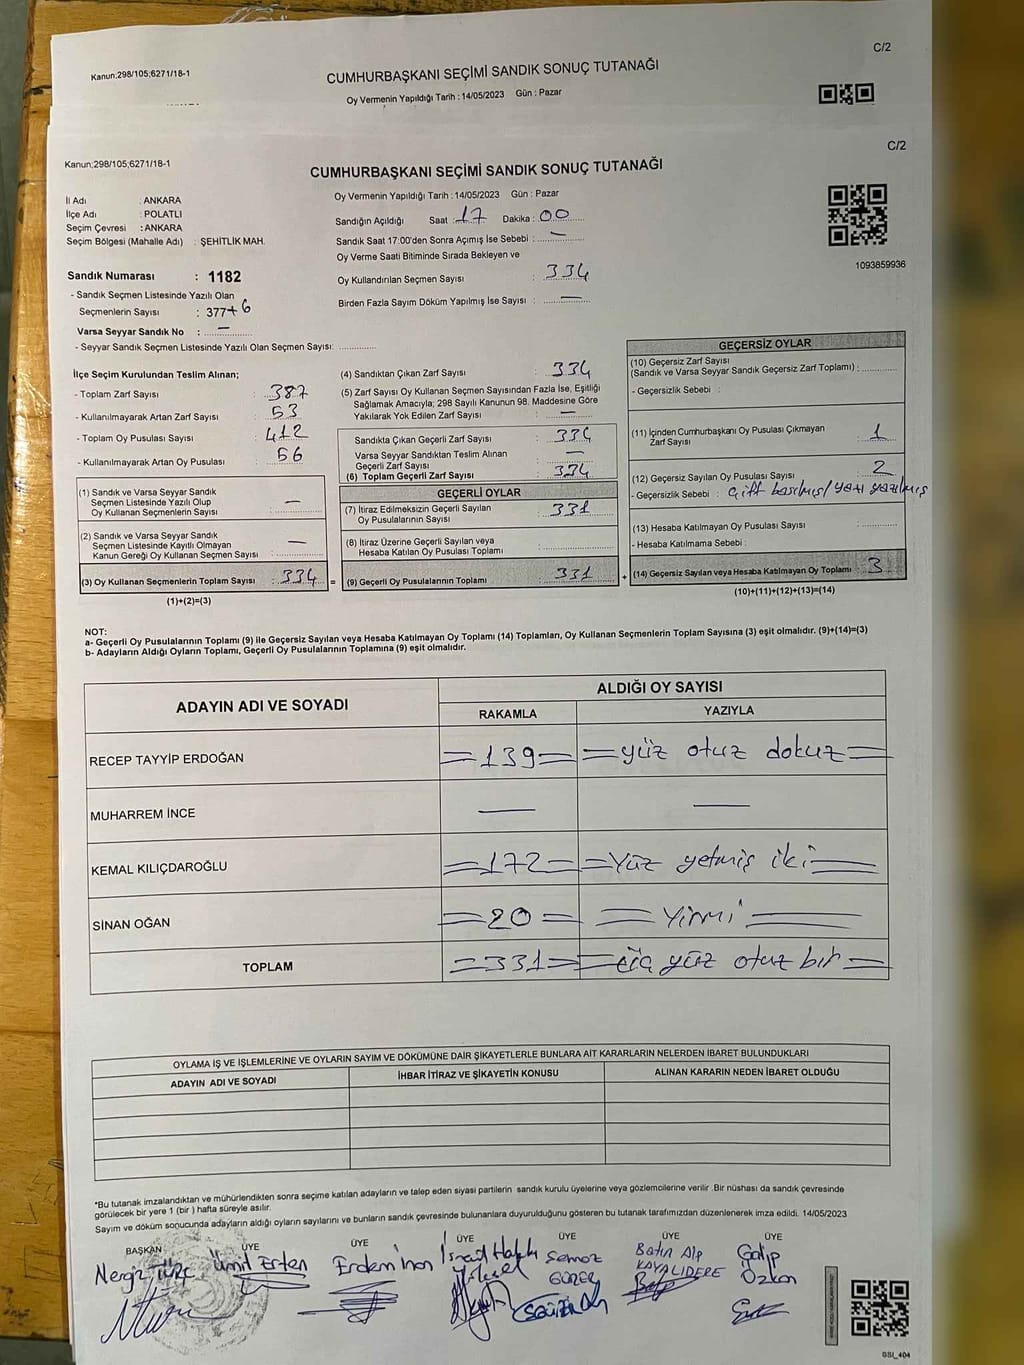 C/2
Kanun:298/105;6271/18-1
CUMHURBAŞKANI SEÇİMİ SANDIK SONUÇ TUTANAĞI
Oy Vermenin Yapıldığı Tarih : 14/05/2023 Gün : Pazar
C/2
Kanun:298/105;6271/18-1
CUMHURBAŞKANI SEÇİMİ SANDIK SONUÇ TUTANAĞI
İl Adı : ANKARA
İlçe Adı : POLATLI
Seçim Çevresi : ANKARA
Seçim Bölgesi (Mahalle Adı) : ŞEHİTLİK MAH.
Oy Vermenin Yapıldığı Tarih : 14/05/2023 Gün : Pazar
Sandığın Açıldığı Saat : 17 Dakika : 00
Sandık Saat 17:00'den Sonra Açımış İse Sebebi : —
Oy Verme Saati Bitiminde Sırada Bekleyen ve
Oy Kullandırılan Seçmen Sayısı : 334
Birden Fazla Sayım Döküm Yapılmış İse Sayısı : —
1093859936
Sandık Numarası : 1182
- Sandık Seçmen Listesinde Yazılı Olan
Seçmenlerin Sayısı : 377+6
Varsa Seyyar Sandık No : —
- Seyyar Sandık Seçmen Listesinde Yazılı Olan Seçmen Sayısı:
İlçe Seçim Kurulundan Teslim Alınan;
- Toplam Zarf Sayısı : 387
- Kullanılmayarak Artan Zarf Sayısı : 53
- Toplam Oy Pusulası Sayısı : 412
- Kullanılmayarak Artan Oy Pusulası : 56
(1) Sandık ve Varsa Seyyar Sandık
Seçmen Listesinde Yazılı Olup
Oy Kullanan Seçmenlerin Sayısı : —
(2) Sandık ve Varsa Seyyar Sandık
Seçmen Listesinde Kayıtlı Olmayan
Kanun Gereği Oy Kullanan Seçmen Sayısı : —
(3) Oy Kullanan Seçmenlerin Toplam Sayısı : 334 =
(1)+(2)=(3)
(4) Sandıktan Çıkan Zarf Sayısı : 334
(5) Zarf Sayısı Oy Kullanan Seçmen Sayısından Fazla İse, Eşitliği
Sağlamak Amacıyla; 298 Sayılı Kanunun 98. Maddesine Göre
Yakılarak Yok Edilen Zarf Sayısı : —
Sandıkta Çıkan Geçerli Zarf Sayısı : 334
Varsa Seyyar Sandıktan Teslim Alınan
Geçerli Zarf Sayısı : —
(6) Toplam Geçerli Zarf Sayısı : 334
GEÇERLİ OYLAR
(7) İtiraz Edilmeksizin Geçerli Sayılan
Oy Pusulalarının Sayısı : 331
(8) İtiraz Üzerine Geçerli Sayılan veya
Hesaba Katılan Oy Pusulası Toplamı :
(9) Geçerli Oy Pusulalarının Toplamı : 331 +
GEÇERSİZ OYLAR
(10) Geçersiz Zarf Sayısı
(Sandık ve Varsa Seyyar Sandık Geçersiz Zarf Toplamı) :
- Geçersizlik Sebebi :
(11) İçinden Cumhurbaşkanı Oy Pusulası Çıkmayan
Zarf Sayısı : 1
(12) Geçersiz Sayılan Oy Pusulası Sayısı : 2
- Geçersizlik Sebebi : Çift basılmış/yazı yazılmış
(13) Hesaba Katılmayan Oy Pusulası Sayısı :
- Hesaba Katılmama Sebebi :
(14) Geçersiz Sayılan veya Hesaba Katılmayan Oy Toplamı : 3
(10)+(11)+(12)+(13)=(14)
NOT:
a- Geçerli Oy Pusulalarının Toplamı (9) ile Geçersiz Sayılan veya Hesaba Katılmayan Oy Toplamı (14) Toplamları, Oy Kullanan Seçmenlerin Toplam Sayısına (3) eşit olmalıdır. (9)+(14)=(3)
b- Adayların Aldığı Oyların Toplamı, Geçerli Oy Pusulalarının Toplamına (9) eşit olmalıdır.
ADAYIN ADI VE SOYADI
ALDIĞI OY SAYISI
RAKAMLA YAZIYLA
RECEP TAYYİP ERDOĞAN =139= =yüz otuz dokuz=
MUHARREM İNCE — —
KEMAL KILIÇDAROĞLU =172= =yüz yetmiş iki=
SİNAN OĞAN =20= =Yirmi=
TOPLAM =331= =üç yüz otuz bir=
OYLAMA İŞ VE İŞLEMLERİNE VE OYLARIN SAYIM VE DÖKÜMÜNE DAİR ŞİKAYETLERLE BUNLARA AİT KARARLARIN NELERDEN İBARET BULUNDUKLARI
ADAYIN ADI VE SOYADI İHBAR İTİRAZ VE ŞİKAYETİN KONUSU ALINAN KARARIN NEDEN İBARET OLDUĞU
*Bu tutanak imzalandıktan ve mühürlendikten sonra seçime katılan adayların ve talep eden siyasi partilerin sandık kurulu üyelerine veya gözlemcilerine verilir .Bir nüshası da sandık çevresinde
görülecek bir yere 1 (bir ) hafta süreyle asılır.
Sayım ve döküm sonucunda adayların aldığı oyların sayılarını ve bunların sandık çevresinde bulunanlara duyurulduğunu gösteren bu tutanak tarafımızdan düzenlenerek imza edildi. 14/05/2023
BAŞKAN ÜYE ÜYE ÜYE ÜYE ÜYE ÜYE
Nergiz Ümit Erten Erdem İnan İsmail Hakkı Semoz Batın Alp Galip
GÜREL KAYALIDERE Özkan
SSI_404